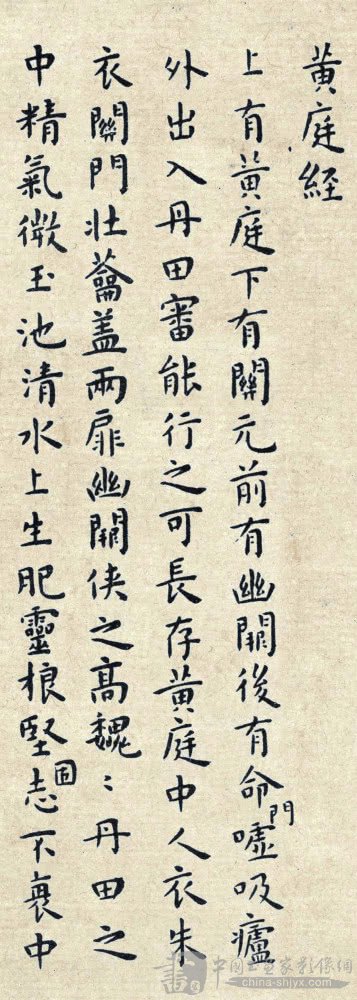 黄庭經
上有黄庭下有關元前有幽闕後有命門嘘吸廬
外出入丹田審能行之可長存黄庭中人衣朱
衣關門壯籥盖兩扉幽闕侠之高魏〻丹田之
中精氣微玉池清水上生肥靈根堅固志不衰中
中国书画家影像网
china-shjyx.com